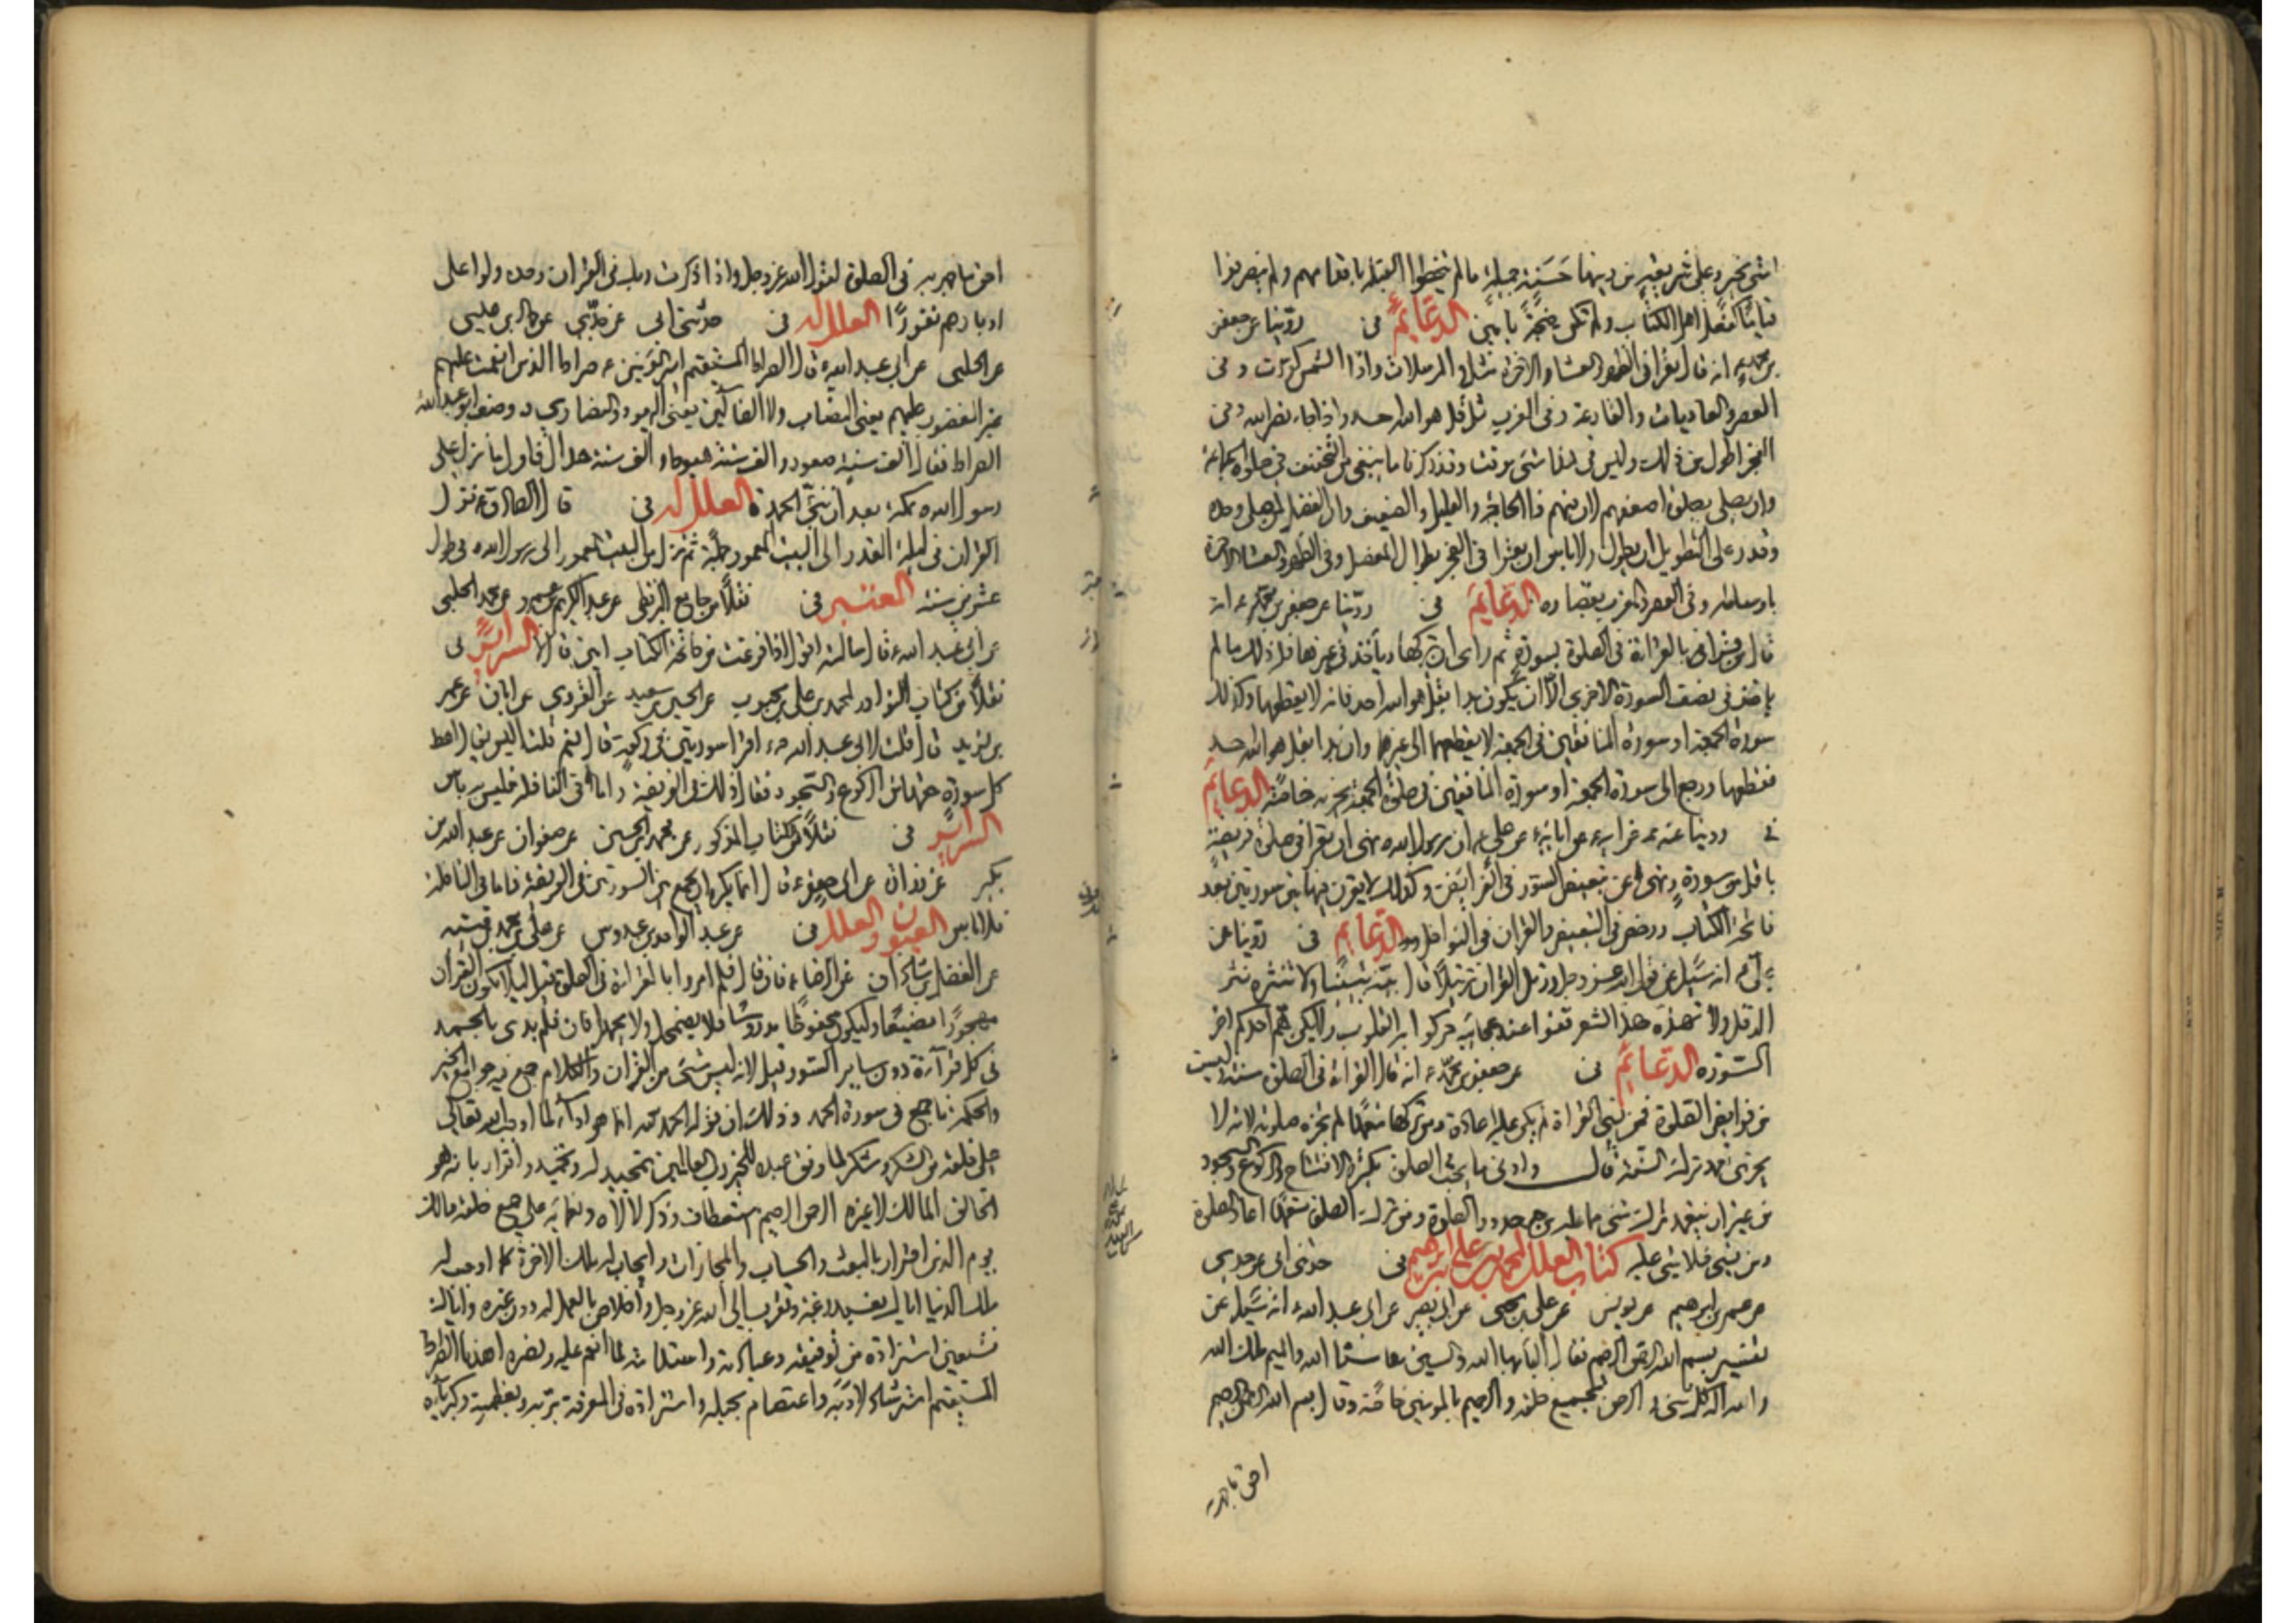 امتي بخير وعلى شريعة من دينها حسنة جميلة ما لم يتخطوا القبلة باقدامهم ولم ينصرفوا
قياما كفعل اهل الكتاب ولم تكن ضجة بامين الدعائم في روينا عن جعفر
بن محمد ع انه قال يقرا في الظهر والعشاء الاخرة مثل والمرسلات واذا الشمس كورت وفي
العصر والعاديات والقارعة وفي المغرب مثل قل هو الله احد واذا جاء نصر الله وفي
الفجر اطول من ذلك وليس في هذا شئ موقت وقد ذكرنا ما ينبغي من التخفيف في صلوة الجماعة
وان يصلي بصلوة اضعفهم لان فيهم ذا الحاجة والعليل والضعيف وان الفضل لمن صلى وحده
وقدر على التطويل ان يطول ولا باس ان يقرا في الفجر بطوال المفصل وفي الظهر والعشاء الاخرة
باوساطه وفي العصر والمغرب بقصاره الدعائم في روينا عن جعفر بن محمد ع انه
قال من بدا بالقراءة في الصلوة بسورة ثم راى ان يتركها وياخذ في غيرها فله ذلك ما لم
ياخذ في نصف السورة الاخرى الا ان يكون بدا بقل هو الله احد فانه لا يقطعها وكذلك
سورة الجمعة او سورة المنافقين في الجمعة لا يقطعهما الى غيرهما وان بدا بقل هو الله احد
فقطعها ورجع الى سورة الجمعة او سورة المنافقين في صلوة الجمعة يجزيه خاصة الدعائم
في روينا عنه عن ابيه عن ابائه عن علي ع ان رسول الله ص نهى ان يقرا في صلوة فريضة
باقل من سورة ونهى عن تبعيض السور في الفرائض وكذلك لا يقرن فيها بين سورتين بعد
فاتحة الكتاب ورخص في التبعيض والقران في النوافل الدعائم في روينا عن
علي ع انه سئل عن قول الله عز وجل ورتل القران ترتيلا قال بينه تبيينا ولا تنثره نثر
الدقل ولا تهذه هذ الشعر قفوا عند عجائبه حركوا به القلوب ولا يكن هم احدكم اخر
السورة الدعائم في عن جعفر بن محمد ع انه قال القراءة في الصلوة سنة وليست
من فرايض الصلوة فمن نسي القراءة لم يكن عليه اعادة ومن تركها متعمدا لم تجزه صلوته لانه لا
يجزي تعمد ترك السنة قال وادنى ما يجب في الصلوة تكبيرة الافتتاح والركوع والسجود
من غير ان يتعمد ترك شئ مما عليه من حدود الصلوة ومن ترك الصلوة متعمدا اعاد الصلوة
ومن نسي فلا شئ عليه كتاب العلل لمحمد بن علي بن ابرهيم في حدثني ابي عن جدي
عن عمر بن ابرهيم عن يونس عن علي بن يحيى عن ابي بصير عن ابي عبد الله ع انه سئل عن
تفسير بسم الله الرحمن الرحيم فقال الباء بهاء الله والسين سناء الله والميم ملك الله
والله اله كل شئ والرحمن لجميع خلقه والرحيم بالمومنين خاصة وقال بسم الله الرحمن الرحيم
احق ما جهر به
احق ما جهر به في الصلوة لقول الله عز وجل واذا ذكرت ربك في القران وحده ولوا على
ادبارهم نفورا العلل له في حدثني ابي عن جدي عن حماد بن عيسى
عن الحلبي عن ابي عبد الله ع قال الصراط المستقيم امير المومنين ع صراط الذين انعمت عليهم
غير المغضوب عليهم يعني النصاب ولا الضالين يعني اليهود والنصارى وصف ابو عبد الله
الصراط فقال الف سنة صعود والف سنة هبوط والف سنة حدال قال اول ما نزل على
رسول الله ص بمكة بعد ان نبئ الحمد العلل له في قال الصادق ع نزل
القران في ليلة القدر الى البيت المعمور جملة ثم نزل من البيت المعمور الى رسول الله ص في طول
عشرين سنة المعتبر في نقلا من جامع البزنطي عن عبد الكريم بن عمرو عن محمد الحلبي
عن ابي عبد الله ع قال سالته اقول اذا فرغت من فاتحة الكتاب امين قال لا السرائر في
نقلا من كتاب النوادر لمحمد بن علي بن محبوب عن الحسين بن سعيد عن القروي عن ابان عن عمر
بن يزيد قال قلت لابي عبد الله ع اقرا سورتين في ركعة قال نعم قلت اليس يقال اعط
كل سورة حقها من الركوع والسجود فقال ذلك في الفريضة واما في النافلة فليس به باس
السرائر في نقلا من الكتاب المذكور عن محمد بن الحسين عن صفوان عن عبد الله بن
بكير عن زرارة عن ابي جعفر ع قال انما يكره ان يجمع بين السورتين في الفريضة فاما في النافلة
فلا باس العيون والعلل في عن عبد الواحد بن عبدوس عن علي بن محمد بن قتيبة
عن الفضل بن شاذان عن الرضا ع فان قال فلم امروا بالقراءة في الصلوة قيل لئلا يكون القران
مهجورا مضيعا وليكون محفوظا مدروسا فلا يضمحل ولا يجهل فان قال فلم بدئ بالحمد
في كل قراءة دون ساير السور قيل لانه ليس شئ من القران والكلام جمع فيه جوامع الخير
والحكمة ما جمع في سورة الحمد وذلك ان قوله الحمد لله انما هو اداء لما اوجب الله تعالى
على خلقه من الشكر وشكر لما وفق عبده للخير رب العالمين تمجيد له وتحميد واقرار بانه هو
الخالق المالك لا غيره الرحمن الرحيم استعطاف وذكر لالائه ونعمائه على جميع خلقه مالك
يوم الدين اقرار بالبعث والحساب والمجازات وايجاب له ملك الاخرة كما اوجب له
ملك الدنيا اياك نعبد رغبة وتقرب الى الله عز وجل واخلاص بالعمل له دون غيره واياك
نستعين استزادة من توفيقه وعبادته واستدامة لما انعم عليه ونصره اهدنا الصراط
المستقيم استرشاد لادبه واعتصام بحبله واستزادة في المعرفة بربه وبعظمته وكبريائه